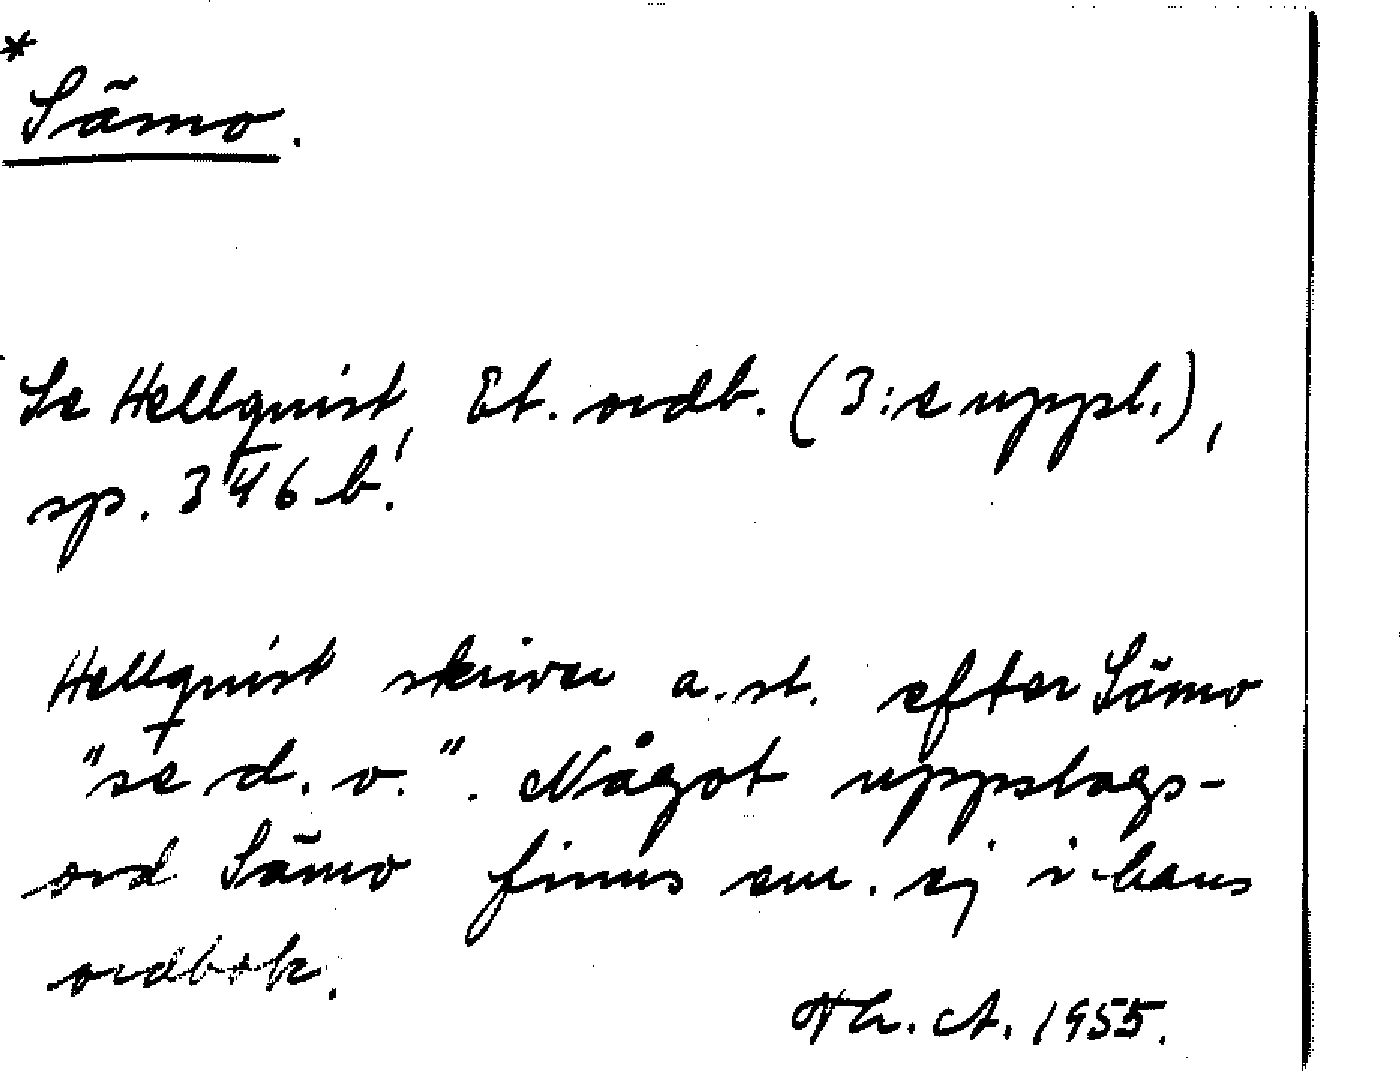 *
Sämo.
Se Hellquist, Et. ordb. (3:e uppl.),
sp. 346 b!
Hellquist skriver a. st. efter Sämo
"se d. o.". Något uppslags-
ord Sämo finns em. ej i hans
ordbok.
Th. A. 1955.